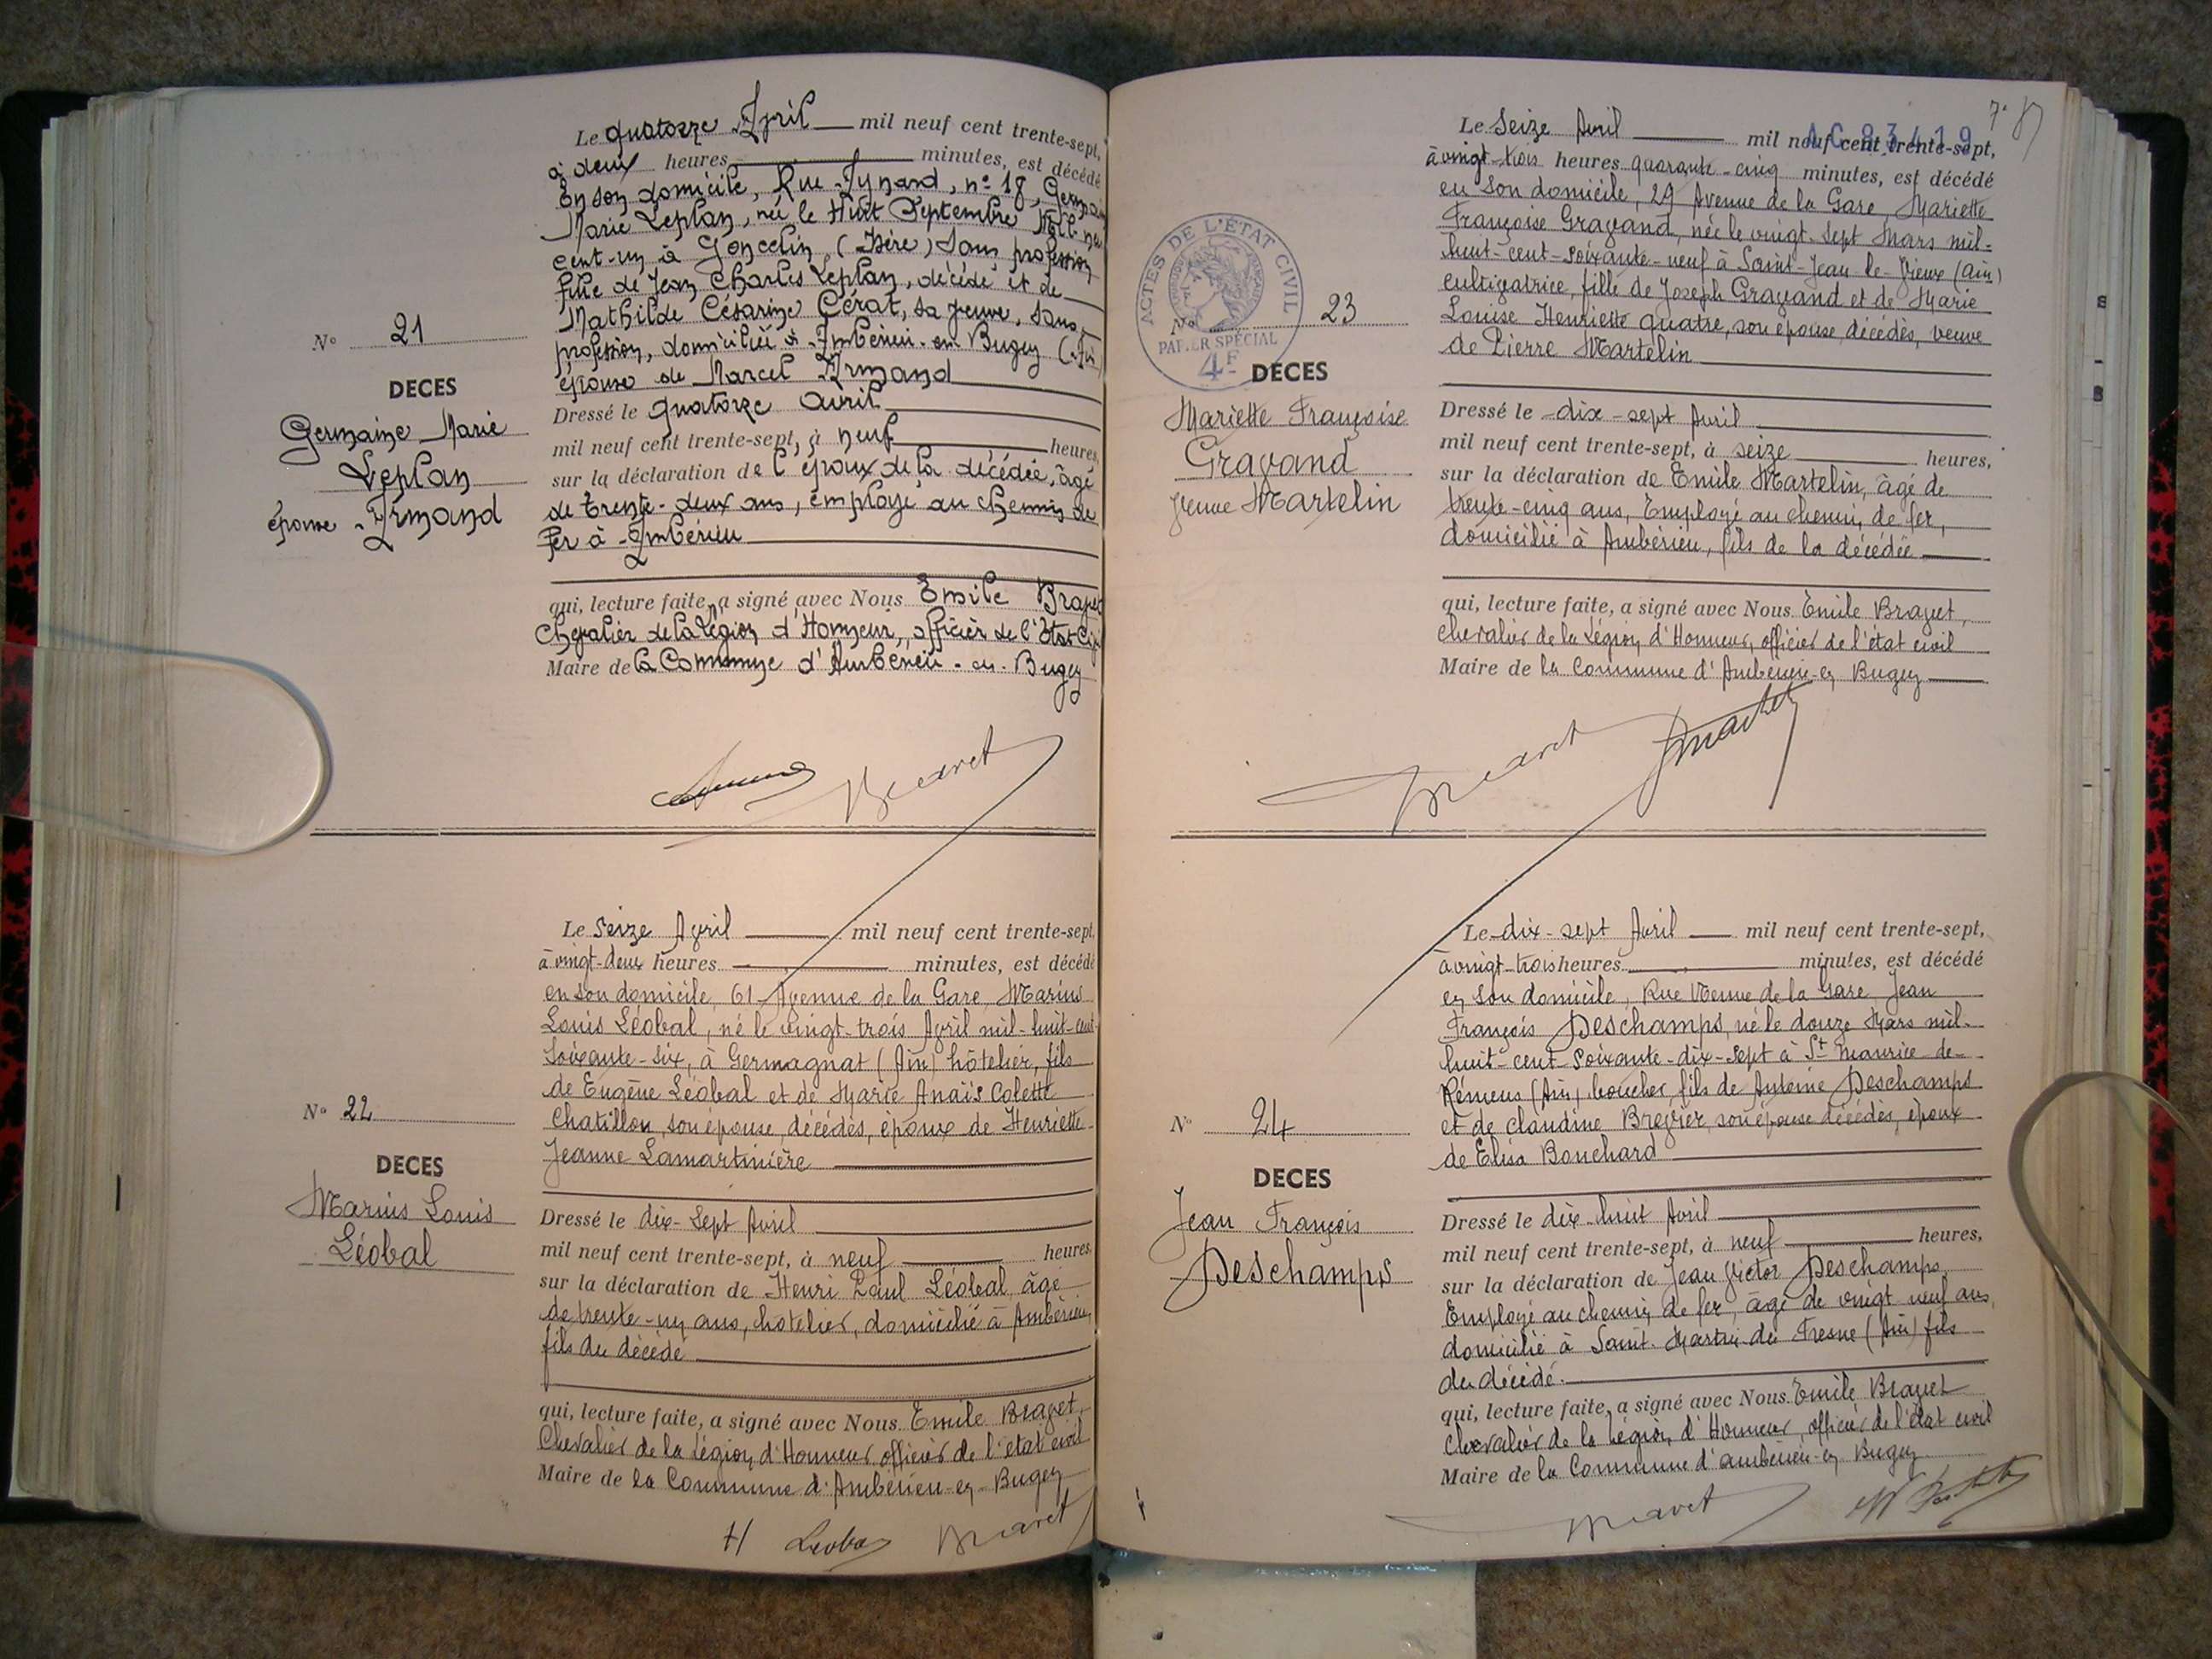 Le quatorze Avril mil neuf cent trente-sept,
à deux heures minutes, est décédé
En son domicile, Rue Aynard, n° 18, Germaine
Marie Leplan, née le Huit Septembre Mil neuf
cent-un à Goncelin (Isère) sans profession
fille de Jean Charles Leplan, décédé et de
Mathilde Césarine Cérat, sa veuve, sans
profession, domiciliée à Ambérieu-en-Bugey (Ain
épouse de Marcel Armand
N° 21
DECES
Germaine Marie
Leplan
épouse Armand
Dressé le quatorze avril
mil neuf cent trente-sept, à neuf heures,
sur la déclaration de l'époux de la décédée, âgé
de trente-deux ans, employé au chemin de
fer à Ambérieu
qui, lecture faite, a signé avec Nous Emile Bravet
Chevalier de la Légion d'Honneur, officier de l'Etat Civil
Maire de la Commune d'Ambérieu-en-Bugey
Bravet
Le seize Avril mil neuf cent trente-sept,
à vingt-deux heures minutes, est décédé
en son domicile, 61 Avenue de la Gare, Marius
Louis Léobal, né le vingt-trois Avril mil-huit-cent
soixante-six, à Germagnat (Ain) hôtelier, fils
de Eugène Léobal et de Marie Anaïs Colette
Chatillon, son épouse, décédés, époux de Henriette
Jeanne Lamartinière
N° 22
DECES
Marius Louis
Léobal
Dressé le dix-sept Avril
mil neuf cent trente-sept, à neuf heures,
sur la déclaration de Henri Paul Léobal, âgé
de trente-un ans, hôtelier, domicilié à Ambérieu,
fils du décédé
qui, lecture faite, a signé avec Nous Emile Bravet,
Chevalier de la Légion d'Honneur officier de l'état civil
Maire de la Commune d'Ambérieu-en-Bugey
H Leobal Bravet
7.
AC 83419
Le seize Avril mil neuf cent trente-sept,
à vingt-trois heures quarante-cinq minutes, est décédé
en son domicile, 29 Avenue de la Gare, Mariette
Françoise Gravand, née le vingt-sept Mars mil-
huit-cent-soixante-neuf à Saint-Jean-le-Vieux (Ain)
cultivatrice, fille de Joseph Gravand et de Marie
Louise Henriette Quatre, son épouse, décédés, veuve
de Pierre Martelin
ACTES DE L'ÉTAT CIVIL
PAPIER SPÉCIAL
4F
N° 23
DECES
Mariette Françoise
Gravand
veuve Martelin
Dressé le dix-sept Avril
mil neuf cent trente-sept, à seize heures,
sur la déclaration de Emile Martelin, âgé de
trente-cinq ans, Employé au chemin de fer,
domicilié à Ambérieu, fils de la décédée
qui, lecture faite, a signé avec Nous Emile Bravet,
chevalier de la Légion d'Honneur, officier de l'état civil
Maire de la Commune d'Ambérieu-en Bugey
Bravet
Le dix-sept Avril mil neuf cent trente-sept,
à vingt-trois heures minutes, est décédé
en son domicile, Rue Menue de la Gare, Jean
François Deschamps, né le douze Mars mil-
huit-cent-soixante-dix-sept à St Maurice-de-
Rémens (Ain) boucher, fils de Antoine Deschamps
et de Claudine Brevier, son épouse décédés, époux
de Elisa Bouchard
N° 24
DECES
Jean François
Deschamps
Dressé le dix-huit Avril
mil neuf cent trente-sept, à neuf heures,
sur la déclaration de Jean Victor Deschamps,
Employé au chemin de fer, âgé de vingt neuf ans,
domicilié à Saint-Martin-du Fresne (Ain) fils
du décédé.
qui, lecture faite, a signé avec Nous Emile Bravet
Chevalier de la Légion d'Honneur, officier de l'état civil
Maire de la Commune d'Ambérieu-en Bugey
Bravet